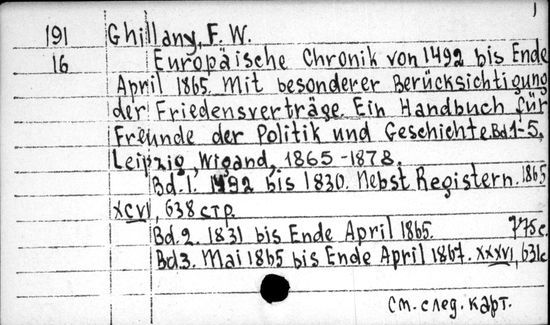 1
191 Ghillany, F. W.
16 Europäische Chronik von 1492 bis Ende
April 1865. Mit besonderer Berücksichtigung
der Friedensverträge. Ein Handbuch für
Freunde der Politik und Geschichte. Bd 1-5,
Leipzig, Wigand, 1865-1878.
Bd. 1. 1492 bis 1830. Nebst Registern. 1865
XCVI, 638 стр.
Bd. 2. 1831 bis Ende April 1865. 775 с.
Bd 3. Mai 1865 bis Ende April 1867. XXXVI, 631 с
См. след. карт.